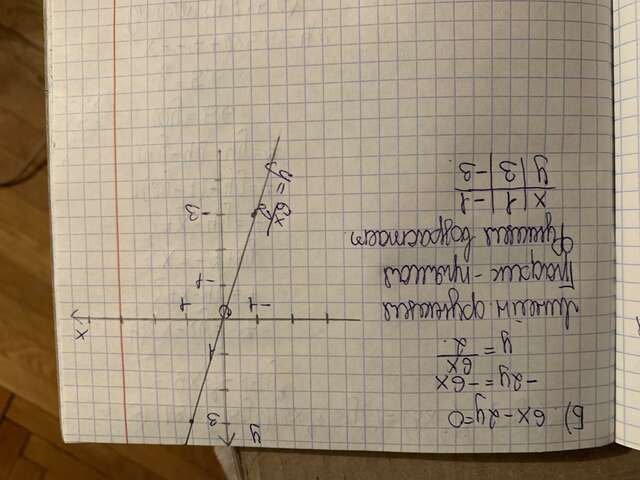 Б) 6x-2y=0
-2y=-6x
y=6x/2.
Линейн функция
График - прямая
Функция возрастает.
x | 1 | -1
y | 3 | -3
y
3
1
x
1
-1
0
-1
-3
y=6x/2